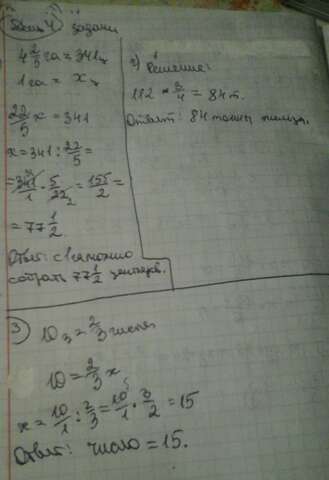 задачи
4 2/5 га = 341 ц
1 га = x ц
22/5 x = 341
x = 341 : 22/5 =
= 341/1 · 5/22 = 155/2 =
= 77 1/2.
Ответ: с 1 га можно
собрать 77 1/2 центнер.
2) Решение:
112 * 3/4 = 84 т.
Ответ: 84 тонны
3
10 = 2/3 числа
10 = 2/3 x
x = 10/1 : 2/3 = 10/1 · 3/2 = 15
Ответ: число = 15.